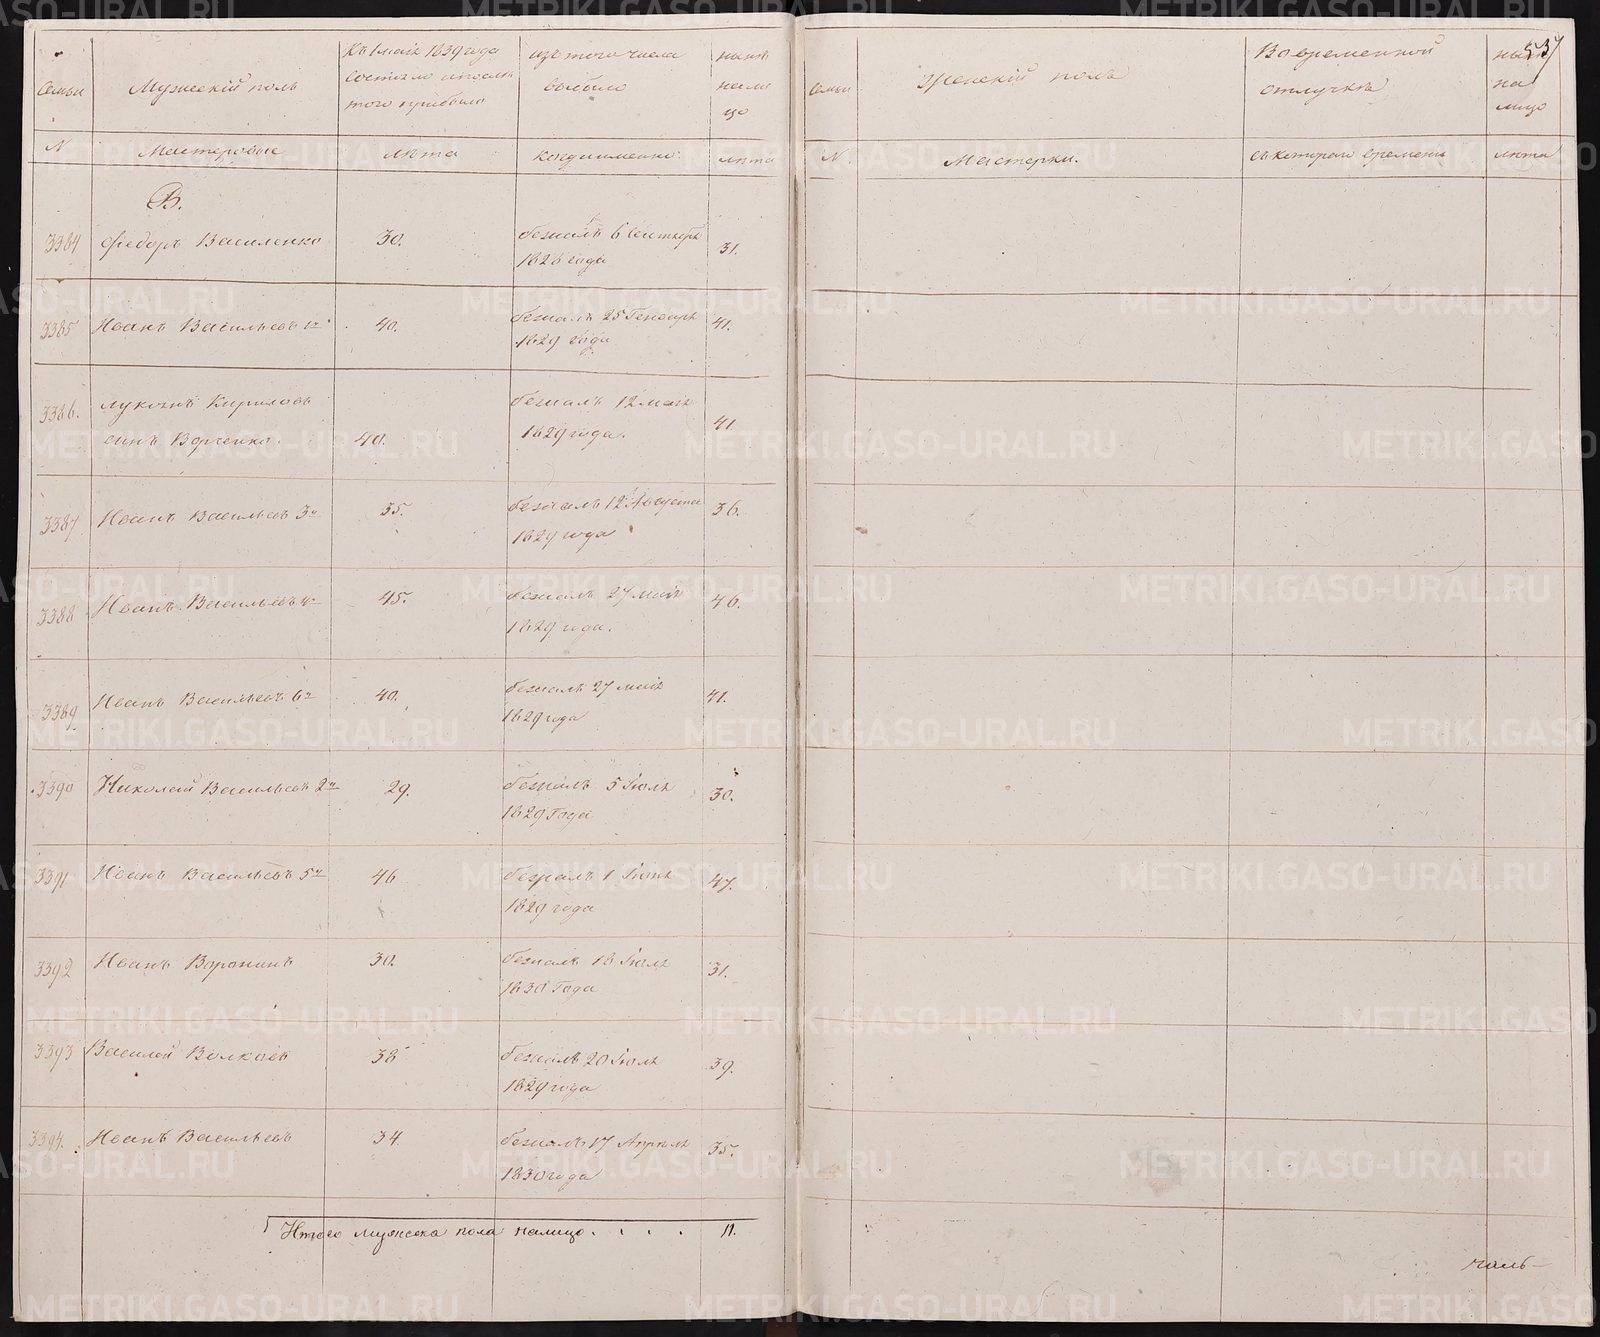 Семьи
Мужескій полъ
Къ 1 маія 1839 года
состояло и после
того прибыло
изъ того числа
выбыло
нынѣ
нали
цо
N
Мастеровые
лѣта
когда именно
лѣта
В.
3384
Ѳедоръ Василенко
30.
бежалъ 6 Сентября
1828 года
31.
3385
Иванъ Васильевъ 1й
40.
бежалъ 25 Генваря
1829 года
41.
3386.
Кириловъ
сынъ
40.
бежалъ 12 маія
1829 года.
41
3387
Иванъ Васильевъ 3й
35.
бежалъ 12 Августа
1829 года
36.
3388
Иванъ Васильевъ 4й
45.
бежалъ 27 маія
1829 года.
46.
3389
Иванъ Васильевъ 6й
40.
бежалъ 27 маія
1829 года
41.
3390
Николай Васильевъ 2й
29.
бежалъ 5 Іюля
1829 Года
30.
3391
Иванъ Васильевъ 5й
46
бежалъ 1
1829 года
47.
3392
Иванъ Воронинъ
30.
бежалъ 18 Іюля
1830 Года
31.
3393
Василей Волковъ
38
бежалъ 20 Іюля
1829 года
39.
3394.
Иванъ Васильевъ
34.
бежалъ 17 Апреля
1830 года
35.
Итого мужеска пола налицо . . . .
11.
Семьи
Женскій полъ
Во временной
отлучке
на
лицо
537
N.
Мастерки.
съ котораго времени
лѣта
METRIKI.GASO-URAL.RU